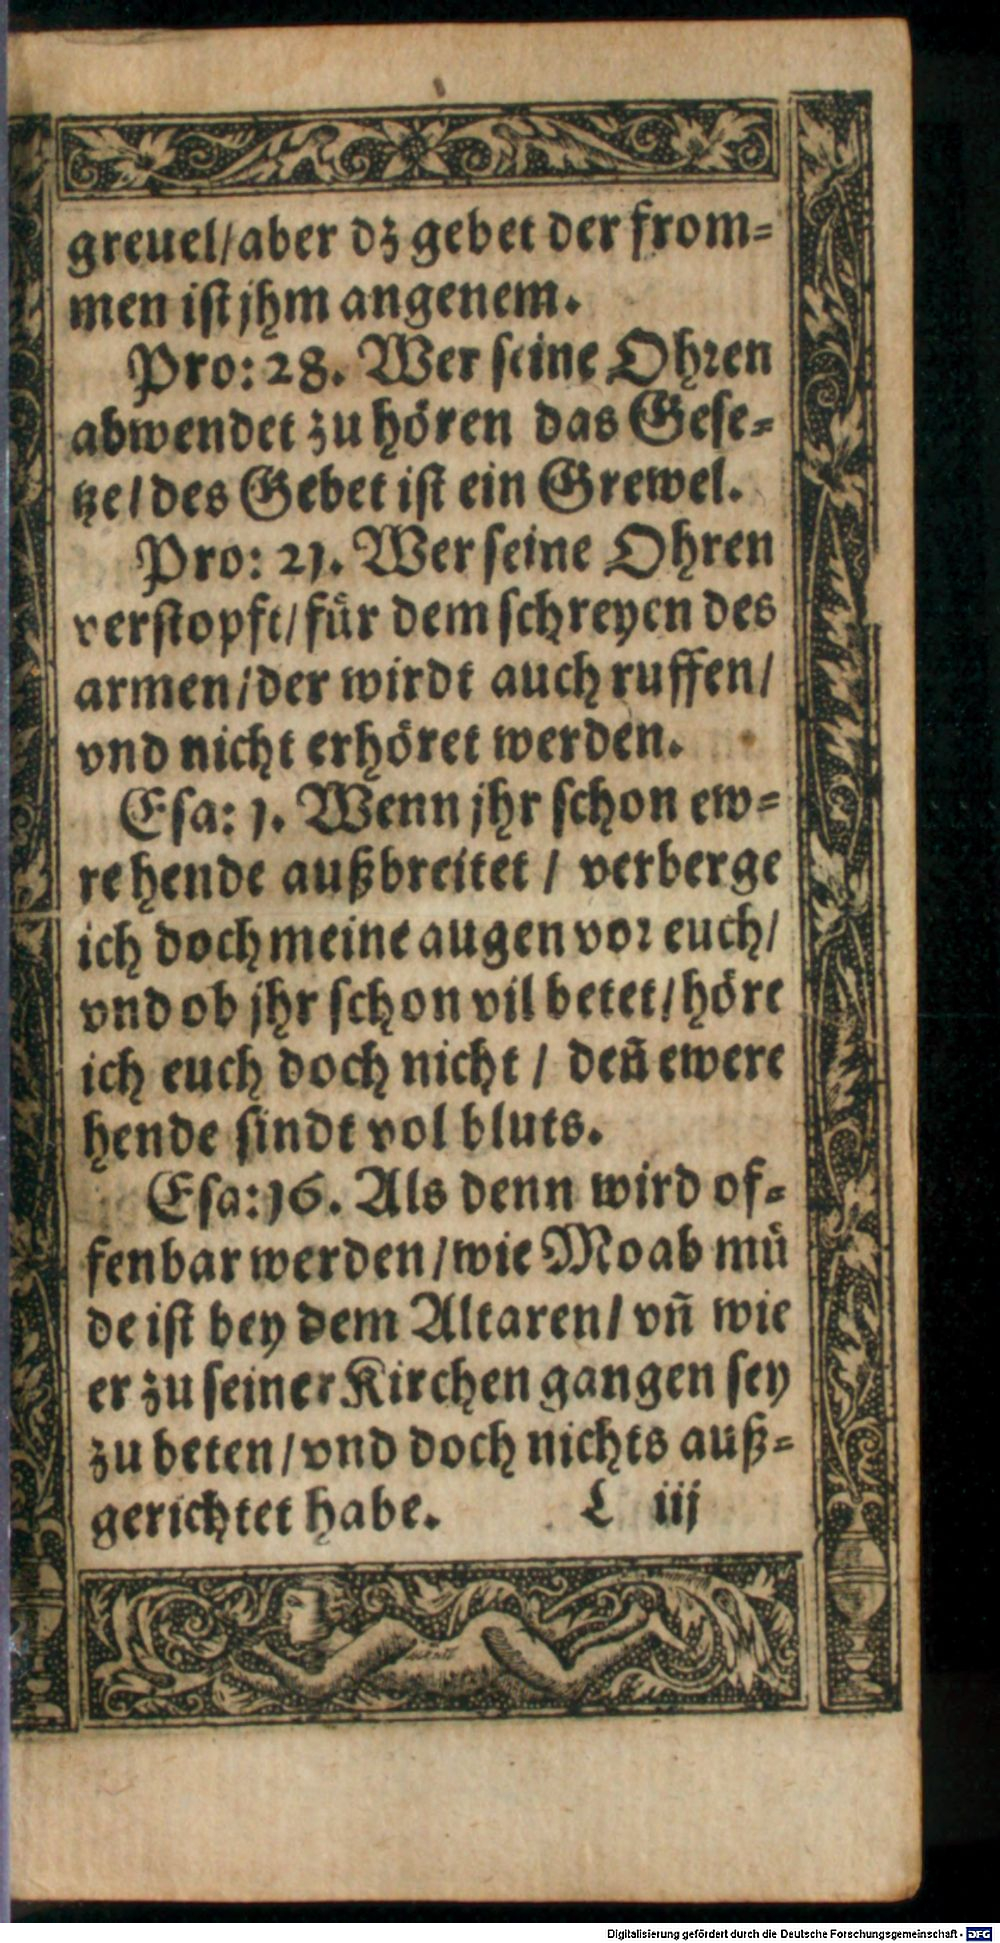 greuel/aber dz gebet der from=
men ist jhm angenem.
Pro: 28. Wer seine Ohren
abwendet zu hören das Gese=
tze/des Gebet ist ein Grewel.
Pro: 21. Wer seine Ohren
verstopft/für dem schreyen des
armen/der wirdt auch ruffen/
vnd nicht erhöret werden.
Esa: 1. Wenn jhr schon ew=
re hende außbreitet / verberge
ich doch meine augen vor euch/
vnd ob jhr schon vil betet/höre
ich euch doch nicht / deñ ewere
hende sindt vol bluts.
Esa: 16. Als denn wird of=
fenbar werden/wie Moab mü
de ist bey dem Altaren/ vñ wie
er zu seiner Kirchen gangen sey
zu beten/vnd doch nichts auß=
gerichtet habe. L iij
Digitalisierung gefördert durch die Deutsche Forschungsgemeinschaft - DFG